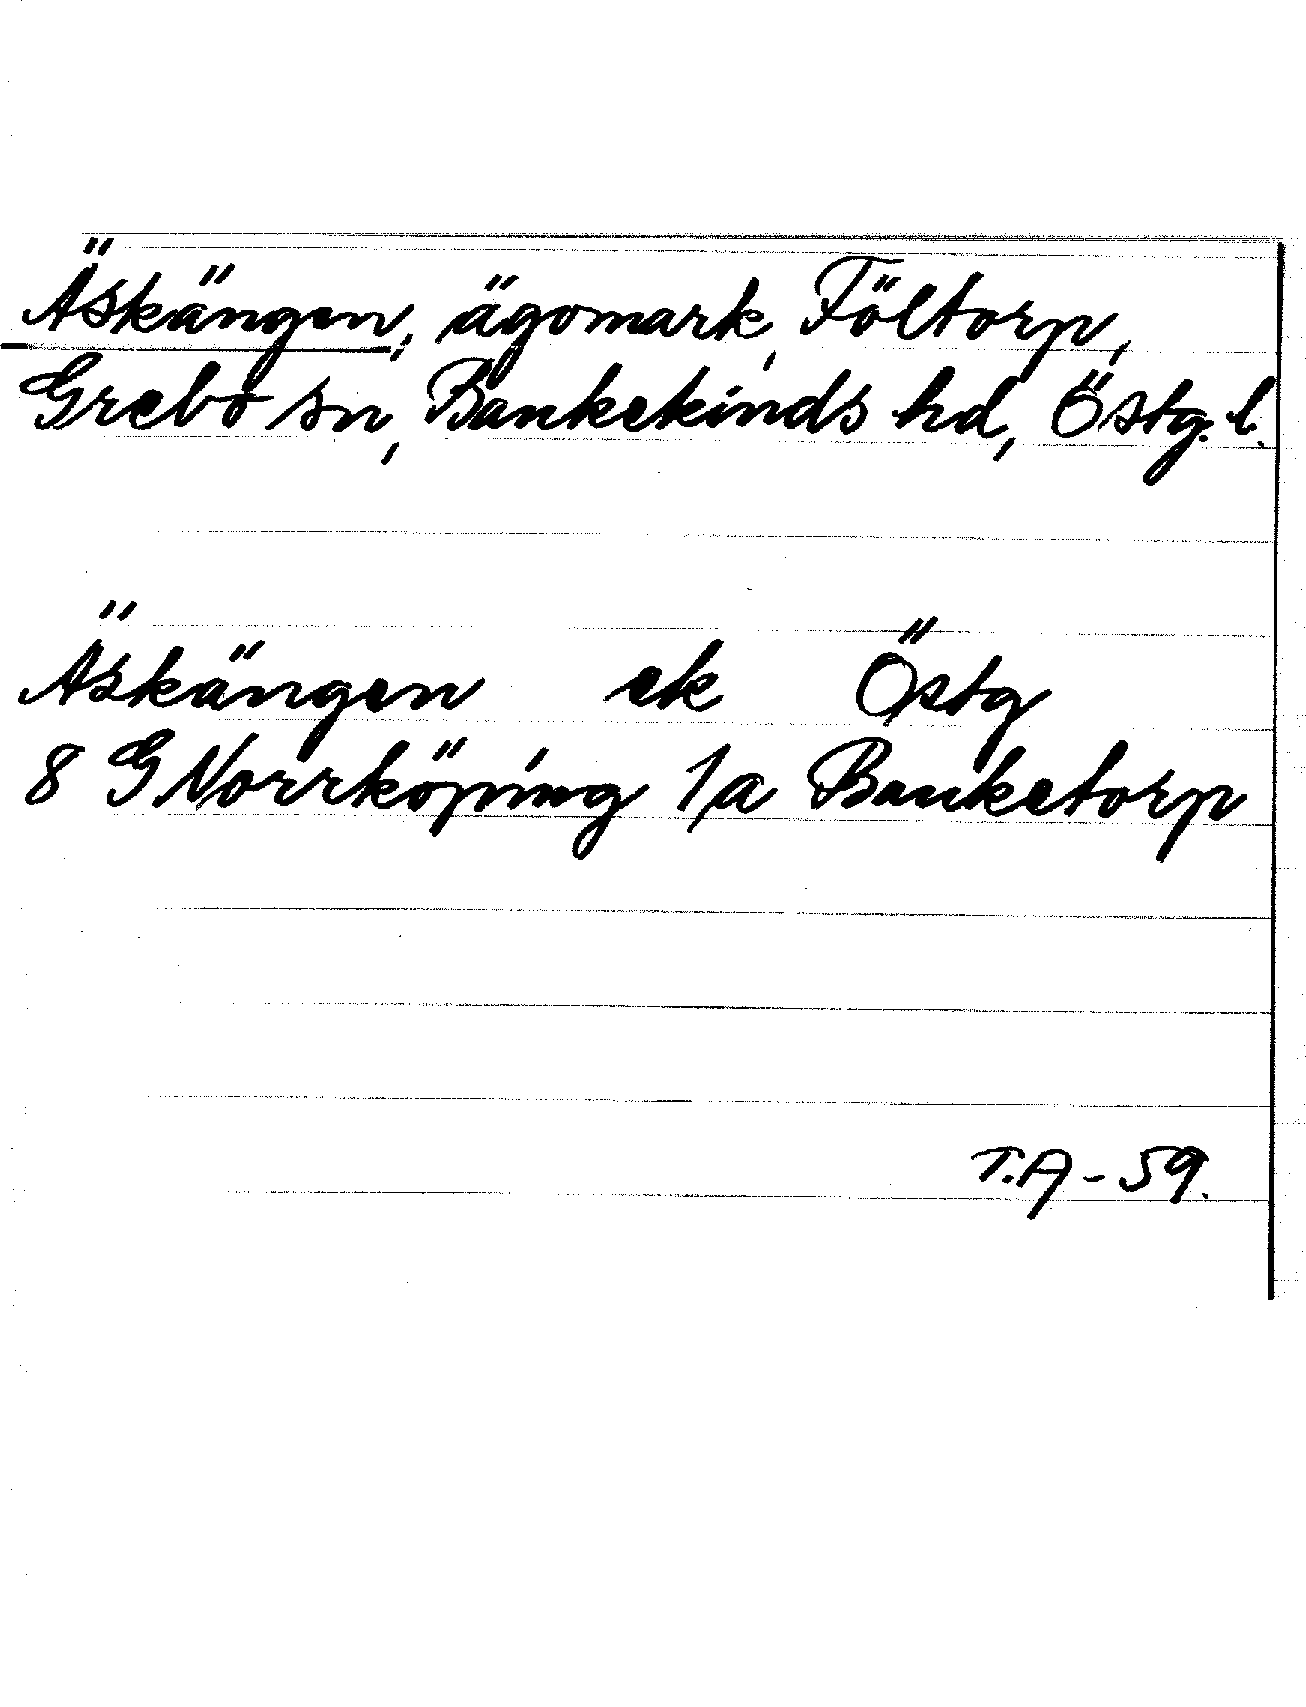 Äskängen, ägomark, Föltorp,
Grebo sn, Bankekinds hd, Östg. l.
Äskängen ek Östg
8 G Norrköping 1a Banketorp
T.A - 59.